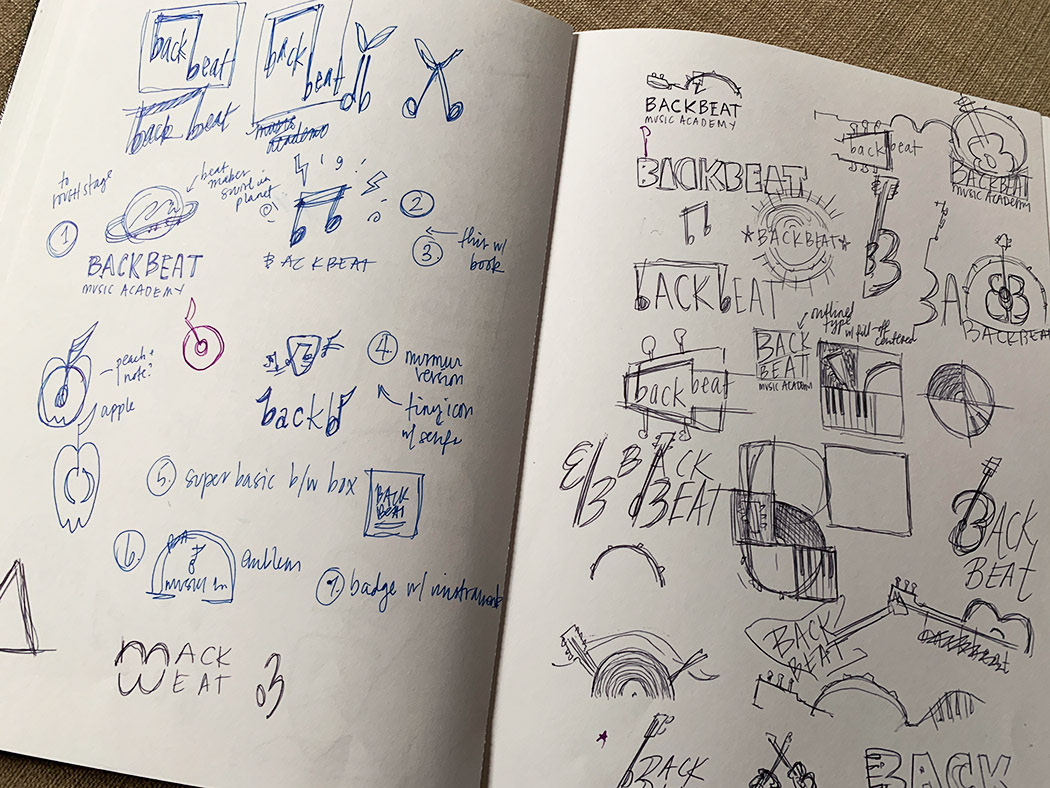 back
beat
back
beat
back beat
Academy
to
beat
maker
swirl in
planet
1
BACKBEAT
MUSIC ACADEMY
2
3.
this w/
book
BACKBEAT
peach +
note?
apple
4
version
tiny icon
w/ serifs
backb
5. super basic b/w box
BACK
BEAT
6.
music
emblem
7. badge w/ instrument
ACK
EAT
BACKBEAT
MUSIC ACADEMY
back beat
BACKBEAT
MUSIC ACADEMY
BACKBEAT
BACKBEAT
B
bACKbEAT
BA
BACKBEAT
outlined
type
w/ full-off
centered
BACK
BEAT
MUSIC ACADEMY
back beat
B
BACK
BEAT
BACK
BEAT
BACK
BEAT
BACK
BACK